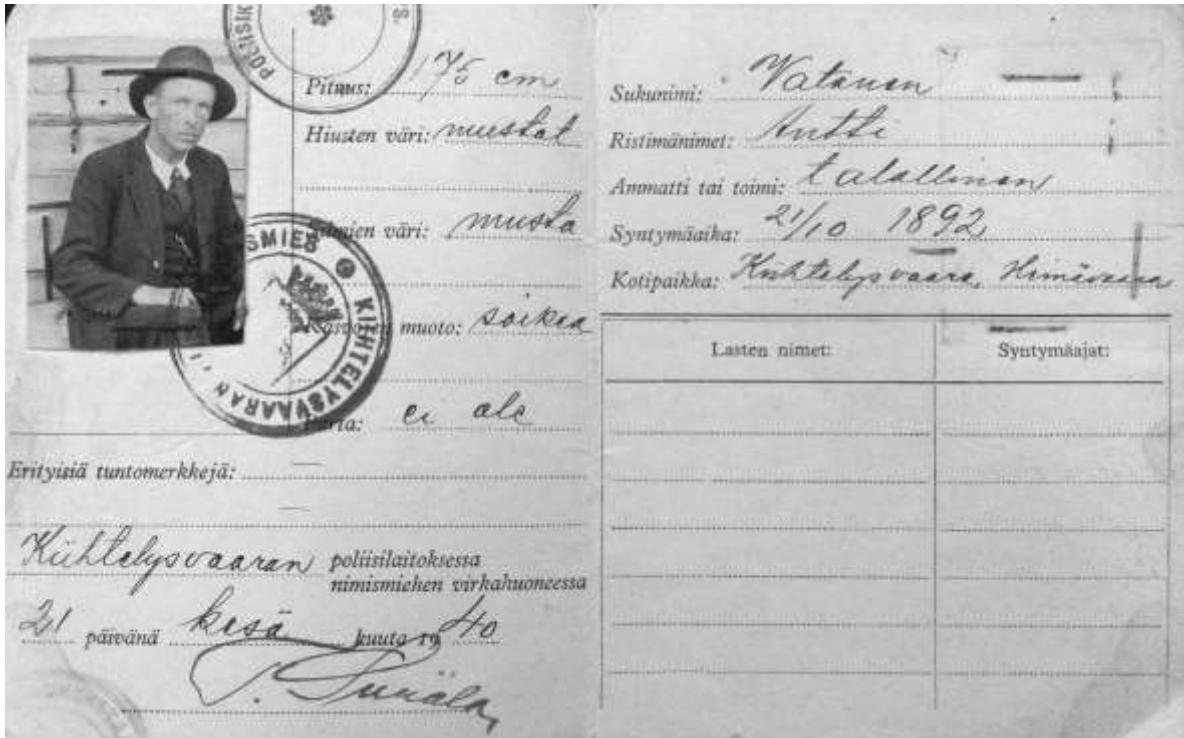 POLIISIK
S.
Pituus: 175 cm
Hiusten väri: mustat
Silmien väri: musta
Kasvojen muoto: soikea
Parta: ei ole
SMIES KIIHTELYSVAARAN
Erityisiä tuntomerkkejä: —
—
Kiihtelysvaaran poliisilaitoksessa
nimismiehen virkahuoneessa
21 päivänä kesä kuuta 1940
Sukunimi: Vatanen
Ristimänimet: Antti
Ammatti tai toimi: talollinen
Syntymäaika: 21/10 1892
Kotipaikka: Kiihtelysvaara,
Lasten nimet: Syntymäajat: